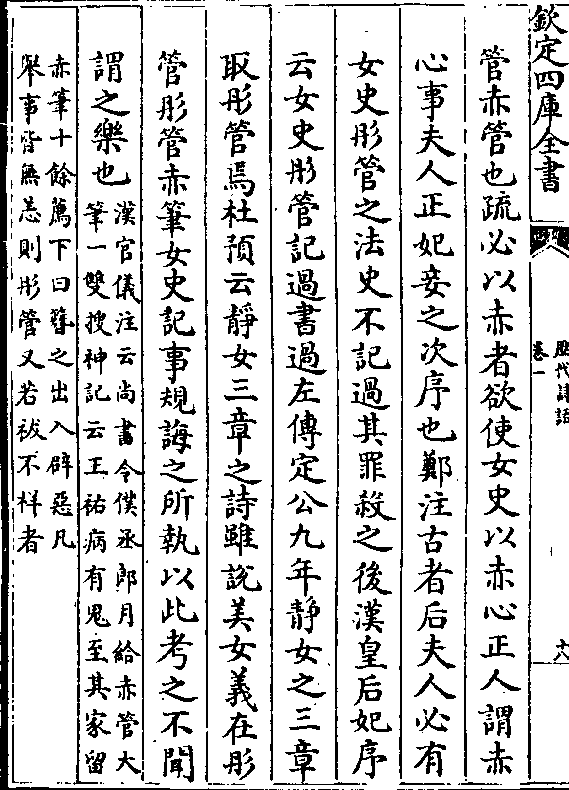 欽定四庫全書
歷代詩話
卷一
六
管赤管也疏必以赤者欲使女史以赤心正人謂赤
心事夫人正妃妾之次序也鄭注古者后夫人必有
女史彤管之法史不記過其罪殺之後漢皇后妃序
云女史彤管記過書過左傳定公九年静女之三章
取彤管焉杜預云靜女三章之詩雖說美女義在彤
管彤管赤筆女史記事規誨之所執以此考之不聞
謂之樂也
漢官儀注云尚書令僕丞郎月給赤管大
筆一雙搜神記云王祐病有鬼至其家留
赤筆十餘薦下曰𭣣之出入辟惡凡
舉事皆無恙則彤管又若祓不祥者